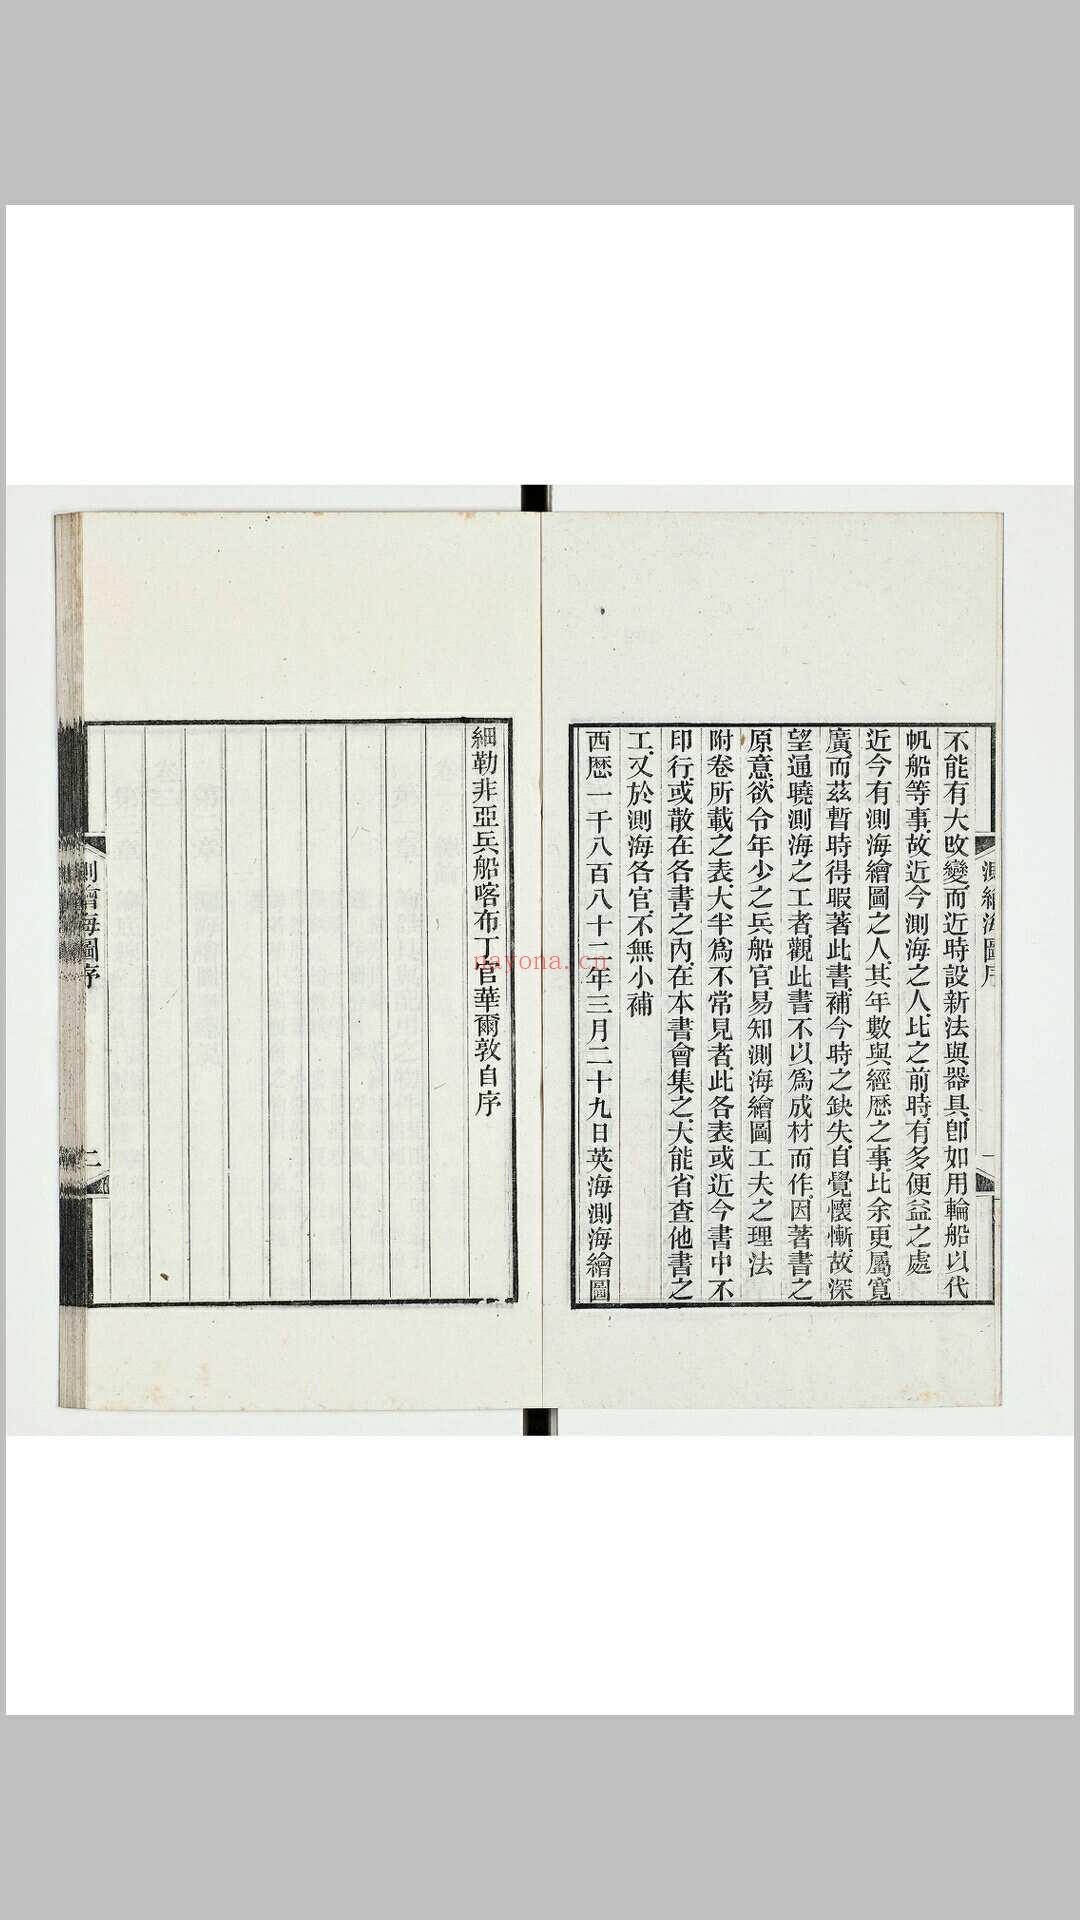 不能有大改變而近時設新法與器具卽如用輪船以代
帆船等事故近今測海之人比之前時有多便益之處
近今有測海繪圖之人其年數與經歷之事比余更屬寬
廣而茲暫時得暇著此書補今時之缺失自覺懷慚故深
望通曉測海之工者觀此書不以爲成材而作因著書之
原意欲令年少之兵船官易知測海繪圖工夫之理法
附卷所載之表大半爲不常見者此各表或近今書中不
印行或散在各書之內在本書會集之大能省查他書之
工又於測海各官不無小補
西歷一千八百八十二年三月二十九日英海測海繪圖
細勒非亞兵船喀布丁官華爾敦自序
測繪海圖序
一
測繪海圖序
二
nayona.cn